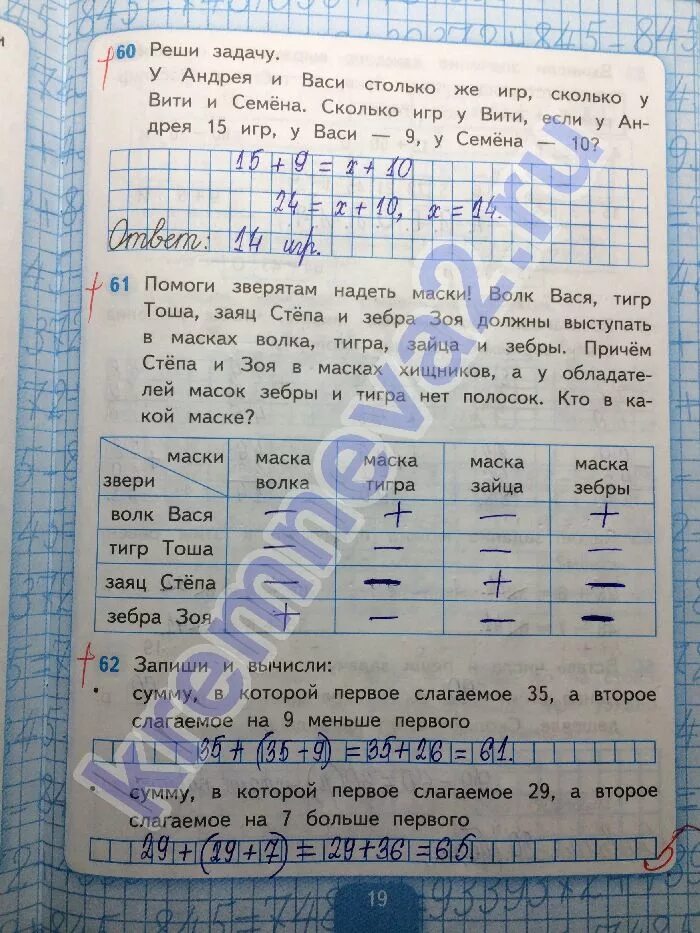 60 Реши задачу.
У Андрея и Васи столько же игр, сколько у
Вити и Семёна. Сколько игр у Вити, если у Ан-
дрея 15 игр, у Васи — 9, у Семёна — 10?
15 + 9 = x + 10
24 = x + 10, x = 14.
Ответ: 14 игр.
61 Помоги зверятам надеть маски! Волк Вася, тигр
Тоша, заяц Стёпа и зебра Зоя должны выступать
в масках волка, тигра, зайца и зебры. Причём
Стёпа и Зоя в масках хищников, а у обладате-
лей масок зебры и тигра нет полосок. Кто в ка-
кой маске?
маски звери маска волка маска тигра маска зайца маска зебры
волк Вася — + — +
тигр Тоша — — — —
заяц Стёпа — — + —
зебра Зоя + — — —
62 Запиши и вычисли:
• сумму, в которой первое слагаемое 35, а второе
слагаемое на 9 меньше первого
35 + (35 - 9) = 35 + 26 = 61.
• сумму, в которой первое слагаемое 29, а второе
слагаемое на 7 больше первого
29 + (29 + 7) = 29 + 36 = 65.
5
19
kremneva2.ru